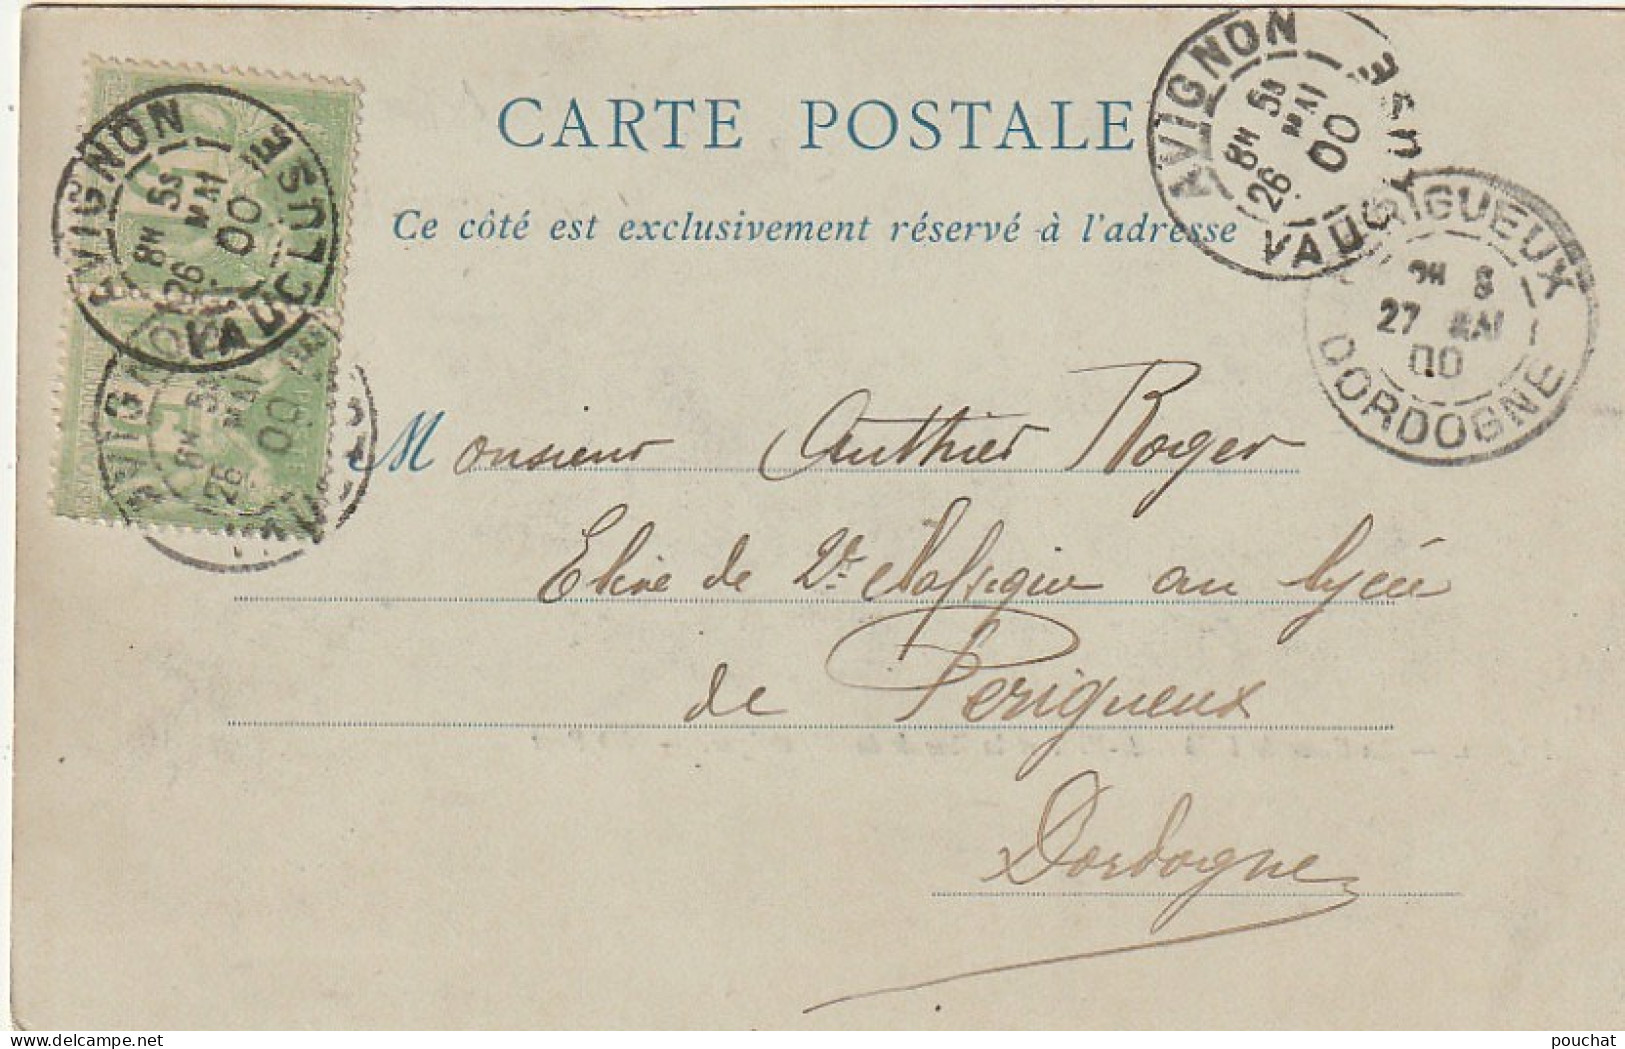 CARTE POSTALE
Ce côté est exclusivement réservé à l'adresse
AVIGNON
8H 5S
26 MAI
00
VAUCLUSE
AVIGNON
8H 5S
26 MAI
00
VAUCLUSE
AVIGNON
5S
26 MAI
00
PERIGUEUX
27 MAI
00
DORDOGNE
Monsieur Authier Roger
Elève de au lycée
de Perigueux
Dordogne
www.delcampe.net
pouchat